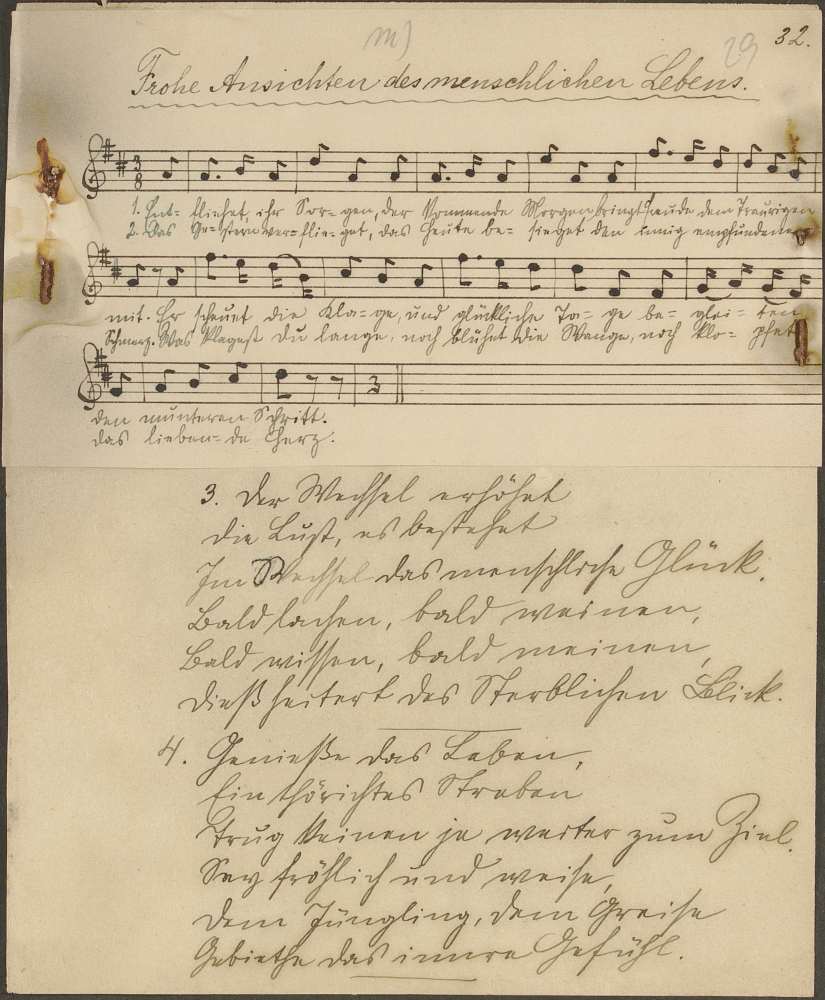 m)
29
32.
Frohe Ansichten des menschlichen Lebens.
3
8
1. Ent- fliehet, ihr Sor- gen, der kommende Morgen bringt Freude dem Traurigen
2. Das Ge- stern ver- flie- get, das Heute be- sieget den innig empfundenen
mit. Er scheuet die Kla- ge, und glückliche Ta- ge be- glei- ten
Schmerz. Was klagest du lange, noch blühet die Wange, noch klo- pfet
3
den munteren Schritt.
das lieben- de Herz.
3. Der Wechsel erhöhet
die Lust, es bestehet
Im Wechsel das menschliche Glück.
Bald lachen, bald weinen,
Bald wissen, bald meinen,
Dieß heitert des Sterblichen Blick.
4. Genieße das Leben,
Ein thörichtes Streben
Trug keinen je weiter zum Ziel.
Sey fröhlich und weise,
Dem Jüngling, dem Greise
Gebiethe das innre Gefühl.